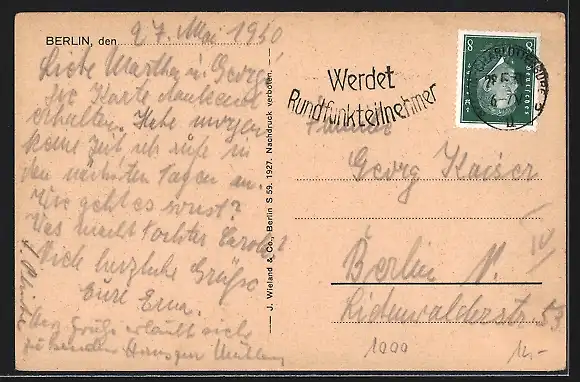 BERLIN, den 27. Mai 1930
Liebe Martha u. Georg!
Ihre Karte dankend
erhalten. Habe morgen
keine Zeit ich rufe in
den nächsten Tagen an.
Wie geht es sonst?
Was macht Tochter
Viele herzliche Grüße
Eure Erna.
Grüße erlaubt sich
zu senden
J. Wieland & Co., Berlin S 59. 1927. Nachdruck verboten.
Werdet
Rundfunkteilnehmer
8 8
Familie
Georg Kaiser
Berlin N.
Lidenwalderstr. 53
IV
1000